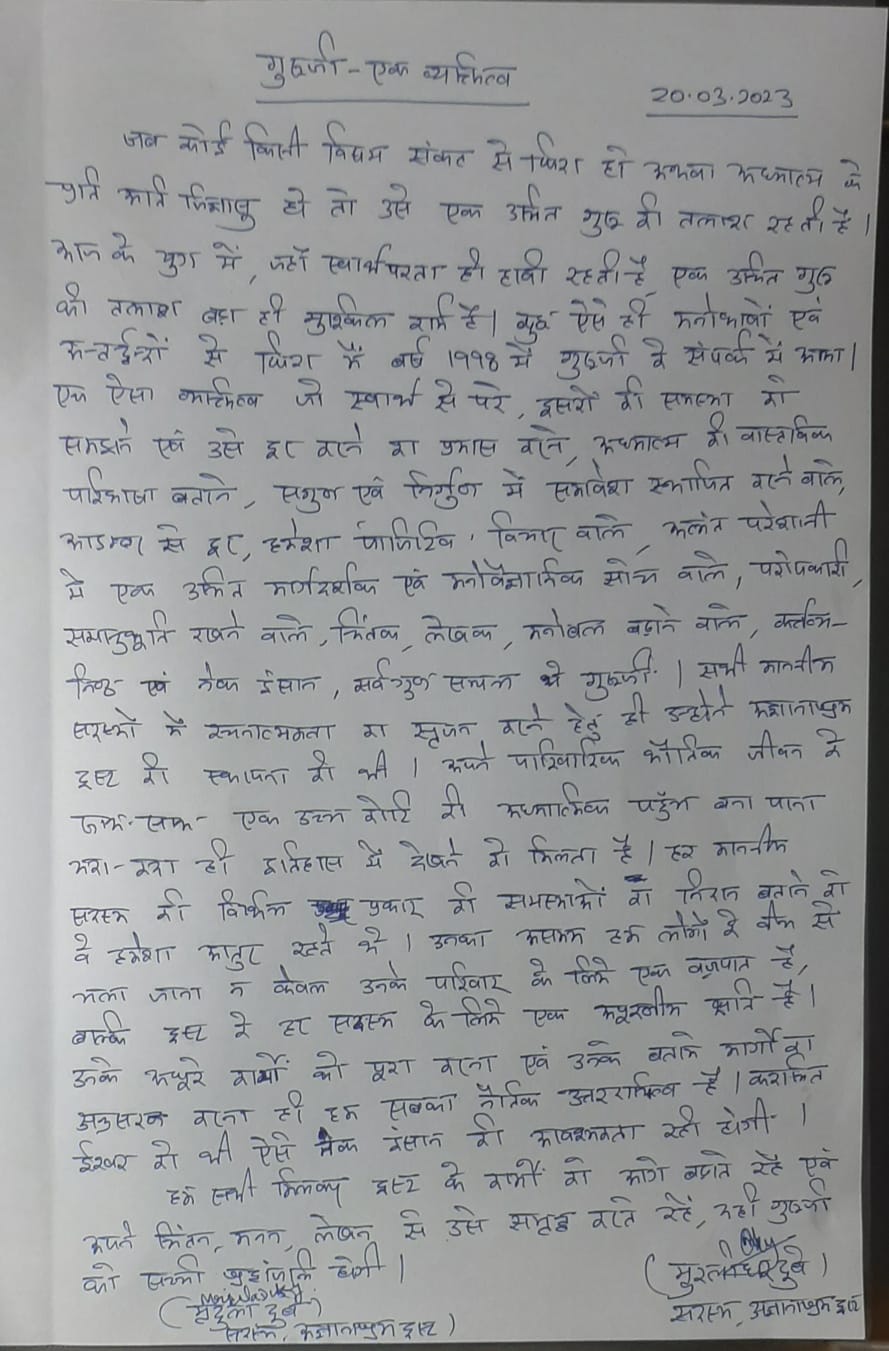 गुरुजी - एक व्यक्तित्व
20.03.2023
जब कोई किसी विषम संकट से घिरा हो अथवा अध्यात्म के
प्रति अति जिज्ञासु हो तो उसे एक उचित गुरु की तलाश रहती है।
आज के युग में, जहाँ स्वार्थपरता ही हावी रहती है, एक उचित गुरु
की तलाश बड़ा ही मुश्किल कार्य है। कुछ ऐसे ही मनोभावों एवं
अन्तर्द्वन्द्वों से घिरा मैं वर्ष 1998 में गुरुजी के संपर्क में आया।
एक ऐसा व्यक्तित्व जो स्वार्थ से परे, दूसरों की समस्या को
समझने एवं उसे दूर करने का प्रयास करने, अध्यात्म की वास्तविक
परिभाषा बताने, सगुण एवं निर्गुण में समावेश स्थापित करने वाले,
आडम्बर से दूर, हमेशा पॉजिटिव विचार वाले, अत्यंत परेशानी
में एक उचित मार्गदर्शक एवं मनोवैज्ञानिक सोच वाले, परोपकारी,
समानुभूति रखने वाले, चिंतक, लेखक, मनोबल बढ़ाने वाले, कर्त्तव्य-
निष्ठ एवं नेक इंसान, सर्वगुण सम्पन्न थे गुरुजी। सभी माननीय
सदस्यों में रचनात्मकता का सृजन करने हेतु ही उन्होंने अज्ञानाश्रम
ट्रस्ट की स्थापना की थी। अपने पारिवारिक भौतिक जीवन के
साथ-साथ एक उच्च कोटि की अध्यात्मिक पहुँच बना पाना
यदा-कदा ही इतिहास में देखने को मिलता है। हर माननीय
सदस्य की विभिन्न प्रकार की समस्याओं का निदान बताने को
वे हमेशा आतुर रहते थे। उनका असमय हम लोगों के बीच से
चला जाना न केवल उनके परिवार के लिये एक वज्रपात है,
बल्कि ट्रस्ट के हर सदस्य के लिये एक अपूरणीय क्षति है।
उनके अधूरे कार्यों को पूरा करना एवं उनके बताये मार्गों का
अनुसरण करना ही हम सबका नैतिक उत्तरदायित्व है। कदाचित
ईश्वर को भी ऐसे नेक इंसान की आवश्यकता रही होगी।
हम सभी मिलकर ट्रस्ट के कार्यों को आगे बढ़ाते रहें एवं
अपने चिंतन, मनन, लेखन से उसे समृद्ध करते रहें, यही गुरुजी
को सच्ची श्रद्धांजलि होगी।
(मुरलीधर दुबे)
सदस्य, अज्ञानाश्रम ट्रस्ट
(मृदुला दुबे)
सदस्य, अज्ञानाश्रम ट्रस्ट)